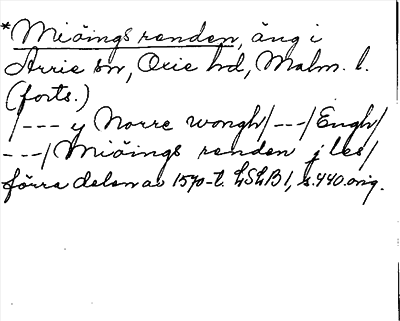 *Miöings renden, äng i
Arrie sn, Oxie hd, Malm. l.
(forts.)
/--- y Norre wongh/---/Engh/
---/Miöings renden j les/
förra delen av 1570-t. LSLB 1, s. 440. orig.